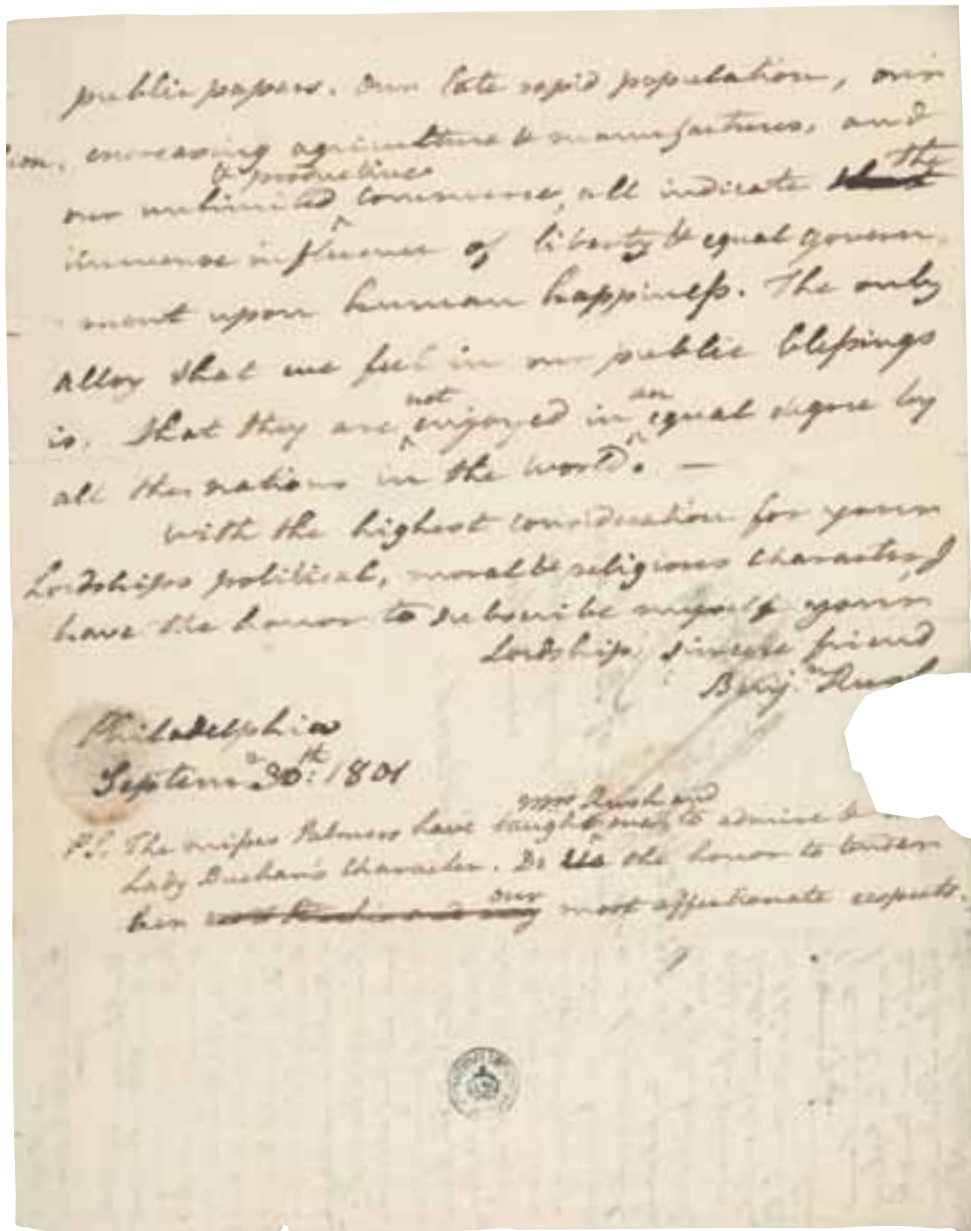 public papers. Our late rapid population, our
ion. encreasing agriculture & manufactures, and
& productive
our unlimited ^ commerce, all indicate the
immense influence of liberty & equal govern-
ment upon human happiness. The only
alloy that we feel in our public blessings
not an
is, that they are ^ enjoyed in ^ equal degree by
all the nations in the world. —
With the highest consideration for your
Lordships political, moral & religious character, I
have the honor to subscribe myself your
Lordships sincere friend
Benjn Rush
Philadelphia
Septemr 30th: 1801
mrs Rush and
P.S. The misses Palmers have taught me ^ to admire &
Lady Buchan's character. Do us the honor to tender
our
her most affectionate respects.